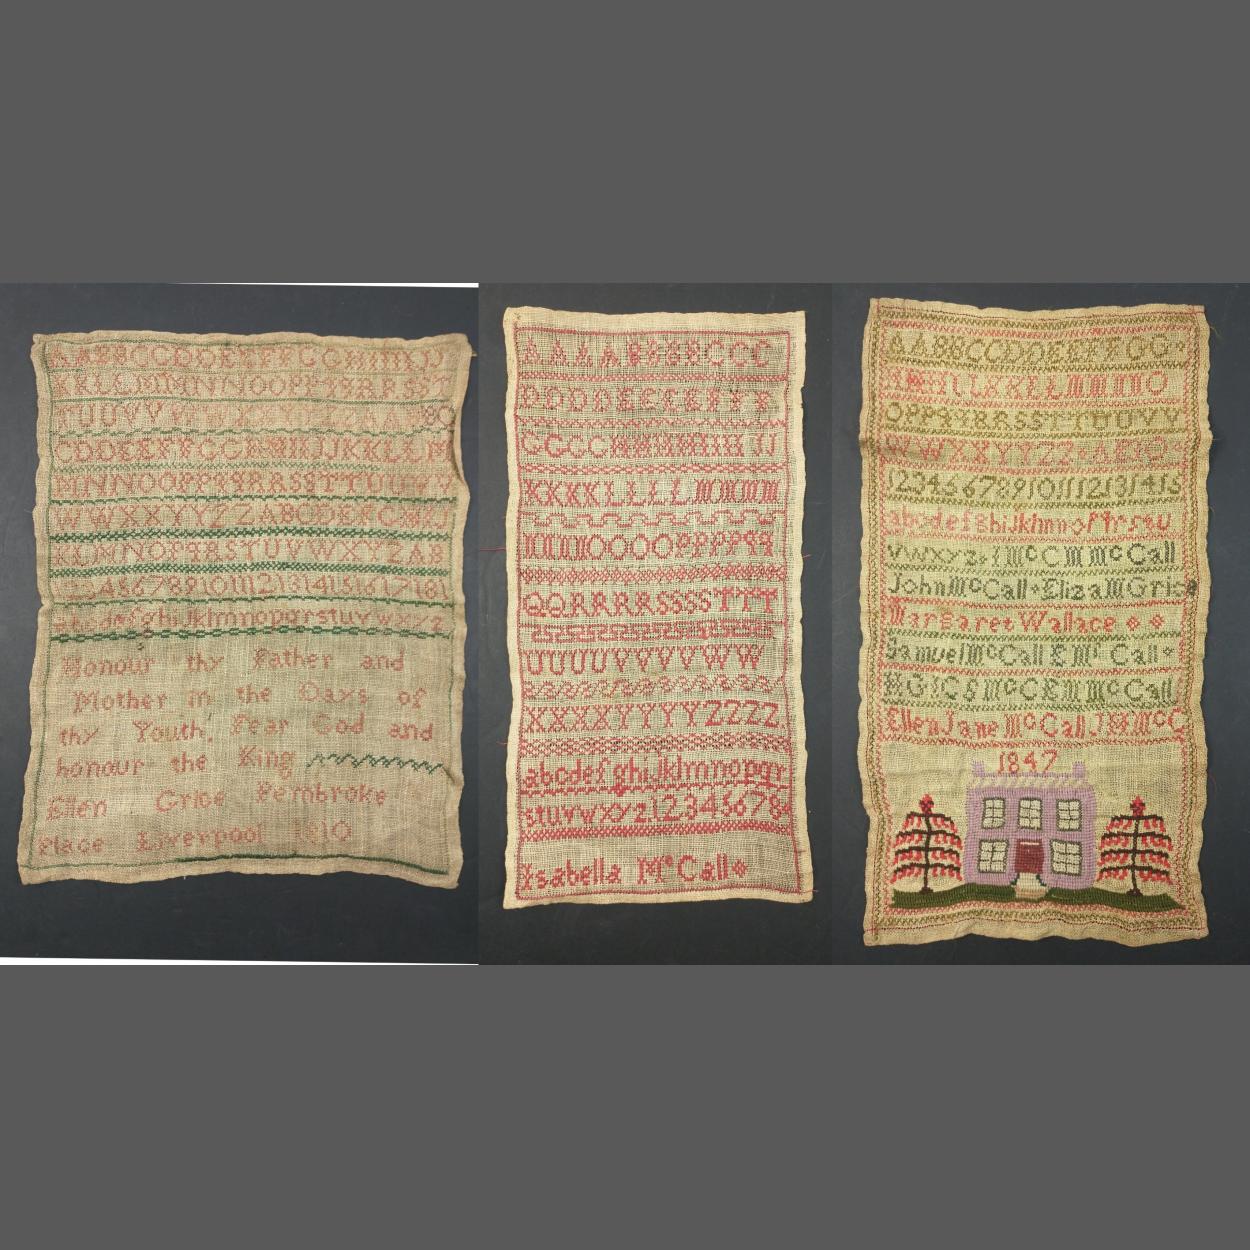 AABBCCDDEEFFGGHHIIJJ
KKLLMMNNOOPPQQRRSST
TUUVVWWXXYYZZAABB
CDDEEFFGGHHIIJJKKLLM
MNNOOPPQQRRSSTTUUVV
WWXXYYZZABCDEFGHIJ
KLMNOPQRSTUVWXYZAB
123456789101112131415161718
abcdefghijklmnopqrstuvwxyz
Honour thy Father and
Mother in the Days of
thy Youth, Fear God and
honour the King
Ellen Grice Pembroke
Place Liverpool 1810
AAAABBBBCCC
DDDDEEEEFFFF
GGGGHHHHIIIIJJ
KKKKLLLLMMMM
NNNNOOOOPPPPQQ
QQRRRRSSSSTTT
UUUUVVVVWW
XXXXYYYYZZZZ
abcdefghijklmnopqr
stuvwxyz12345678
Isabella McCall
AABBCCDDEEFFGG
HHIIJJKKLLMMNNO
OPPQQRRSSTTUUVV
WWXXYYZZ
123456789101112131415
abcdefghijklmnopqrstu
vwxyz McC McCall
John McCall Eliza McGrice
Margaret Wallace
Samuel McCall E Mc Call
McCall
Ellen Jane McCall
1847